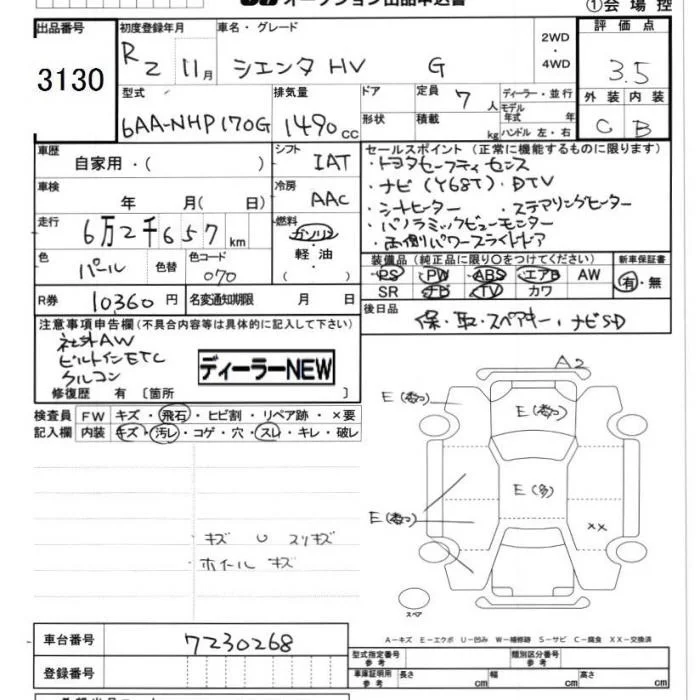 オークション出品申込書 ①会場控
出品番号 初度登録年月 車名・グレード 2WD・4WD 評価点
3130 R2 11月 シエンタ HV G 3.5
型式 排気量 ドア 定員 7人 ディーラー・並行 外装 内装
6AA-NHP170G 1490cc 形状 積載 kg モデル年式 年 ハンドル 左・右 C B
車歴 シフト セールスポイント (正常に機能するものに限ります)
自家用・( ) IAT ・トヨタセーフティセンス
車検 冷房 ・ナビ(Y68T)・DTV
年 月( 日) AAC ・シートヒーター ・ステアリングヒーター
走行 燃料 ・パノラミックビューモニター
6万2千657km ガソリン・軽油・ ・両側パワースライドドア
色 色替 色コード 装備品 (純正品に限り○をつけてください) 新車保証書
パール 070 PS PW ABS エアB AW 有・無
R券 10360円 名変通知期限 月 日 SR ナビ TV カワ
注意事項申告欄 (不具合内容等は具体的に記入して下さい) 後日品
社外AW 保・取・スペアキー・ナビSD
ビルトインETC
クルコン
ディーラーNEW
修復歴 有 〔箇所 〕
検査員 FW キズ・飛石・ヒビ割・リペア跡・×要
記入欄 内装 キズ・汚レ・コゲ・穴・スレ・キレ・破レ
A2
E(春つ) E(春つ)
E(多)
E(春つ)
××
E(春つ)
キズ U スリキズ
ホイール キズ
スペア
A-キズ E-エクボ U-凹み W-補修跡 S-サビ C-腐食 XX-交換済
車台番号 7230268
型式指定番号 参考 類別区分番号 参考
登録番号
車庫証明用 参考 長さ cm 幅 cm 高さ cm